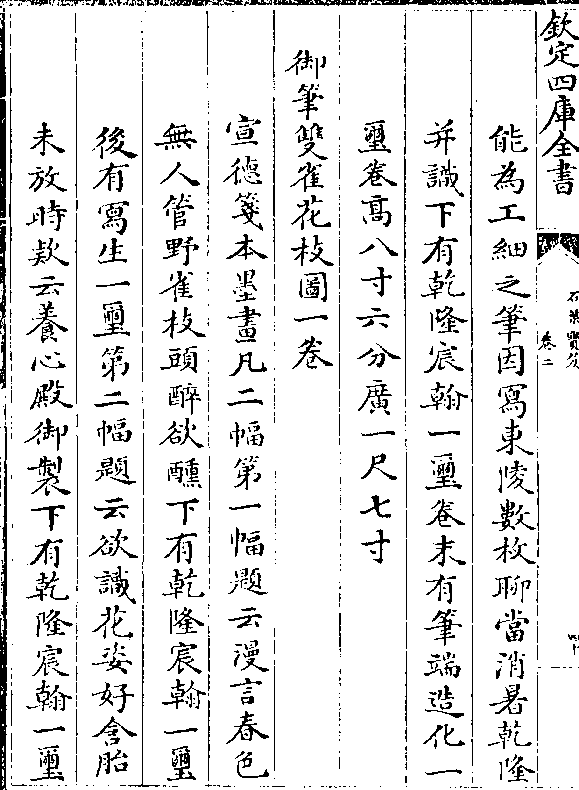 欽定四庫全書
卷二
能為工細之筆因寫東陵數枚聊當消暑乾隆
并識下有乾隆宸翰一璽卷末有筆端造化一
璽卷高八寸六分廣一尺七寸
御筆雙雀花枝圖一卷
宣德箋本墨畫凡二幅第一幅題云漫言春色
無人管野雀枝頭醉欲醺下有乾隆宸翰一璽
後有寫生一璽第二幅題云欲識花姿好含胎
未放時款云養心殿御製下有乾隆宸翰一璽